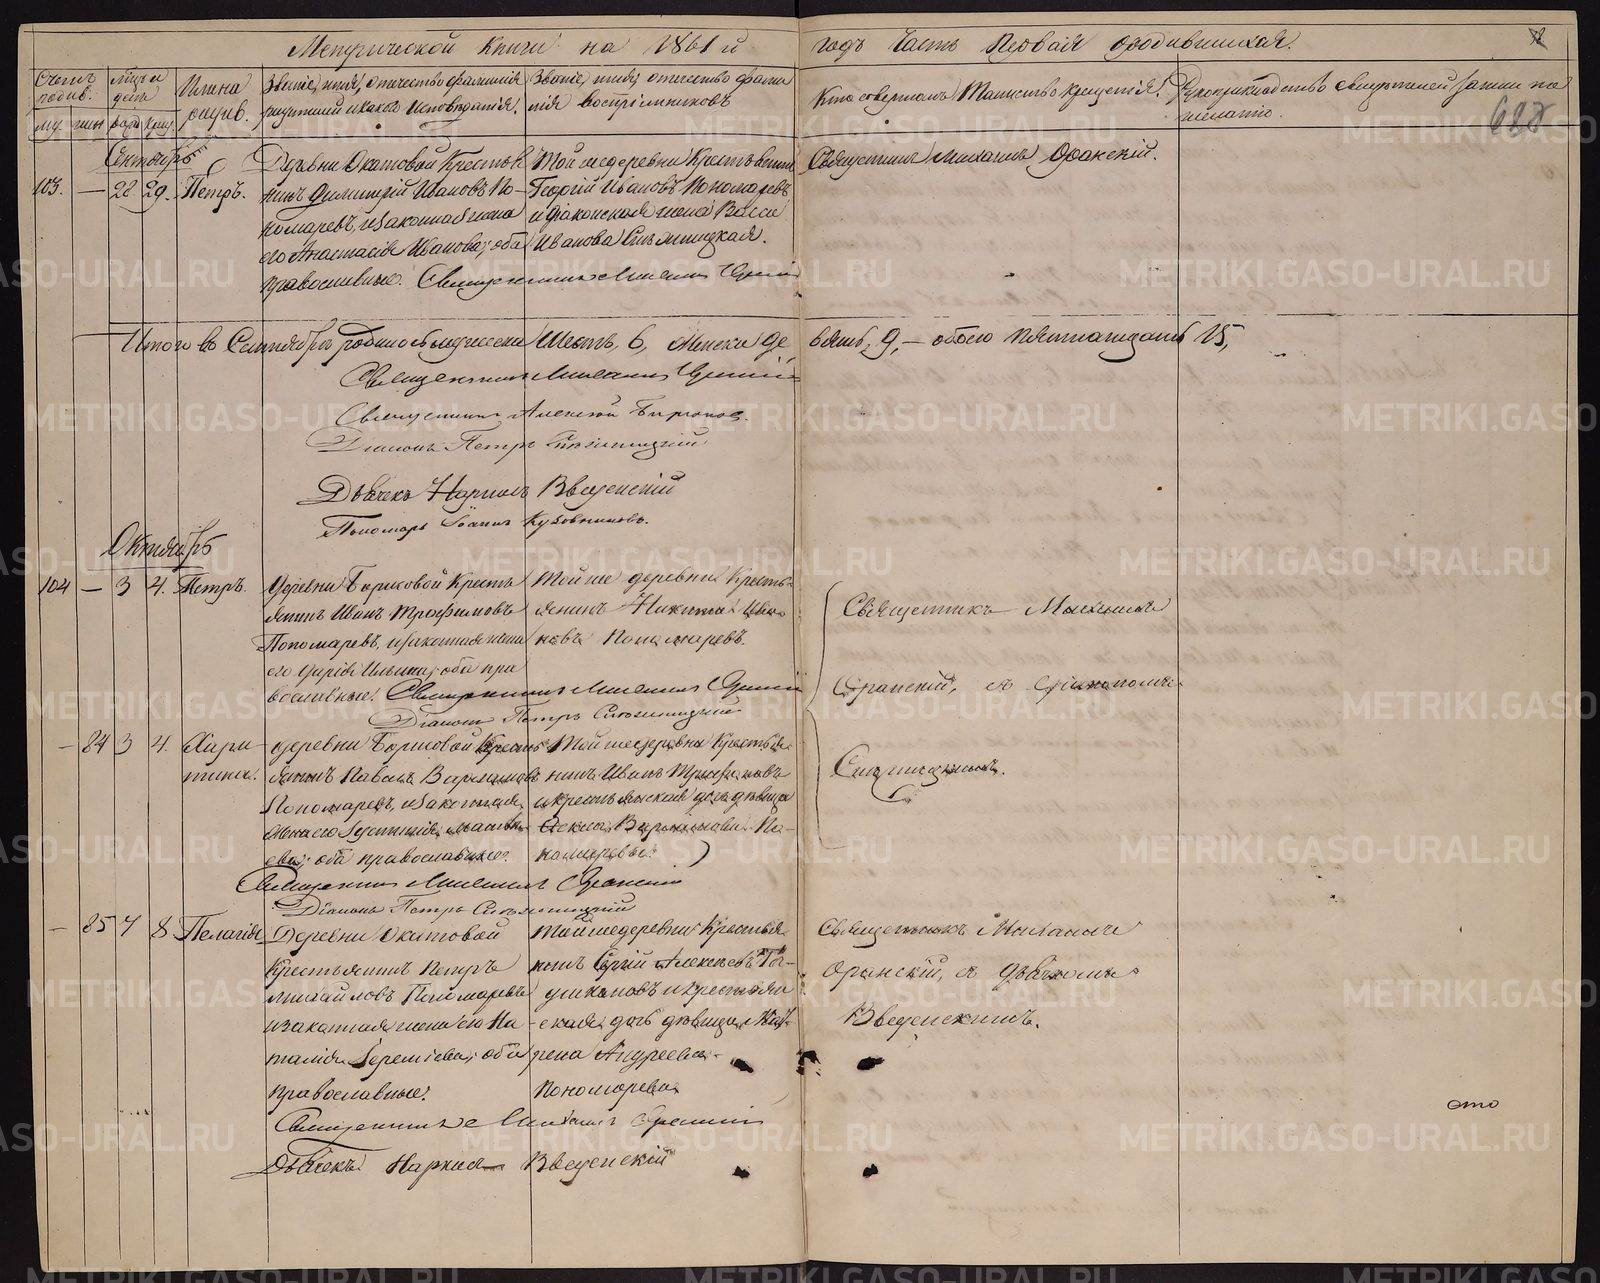 Метрической книги на 1861 й годъ Часть Первая о родившихся.
Счетъ родив.
муж. жен.
Мѣсяцъ и день
рожд. крещ.
Имена родив.
Званіе, имя, отчество и фамилія родителей и какого исповѣданія.
Званіе, имя, отчество и фамилія воспріемниковъ
Кто совершалъ Таинство крещенія.
Рукоприкладство свидѣтелей записи по желанію.
688
Сентябрь
103. — 28 29. Петръ.
Деревни Окатовой Крестья-
нинъ Димитрій Ивановъ По-
номаревъ, и законная жена
его Анастасія Иванова; оба
православные. Священникъ Михаилъ Оранскій
Той же деревни Крестьянинъ
Георгій Ивановъ Пономаревъ
и діаконская жена Васса
Иванова
Священникъ Михаилъ Оранскій.
Итого въ Сентябрѣ родилось мужеска Шесть, 6, Женска Де вять, 9, — обоего пятнадцать 15,
Священникъ Михаилъ Оранскій
Священникъ Алексѣй
Діаконъ Петръ
Дьячекъ Наркисъ Введенскій
Пономарь Іоаннъ Кузовниковъ.
Октябрь
104 — 3 4. Петръ.
Деревни Борисовой Кресть-
янинъ Иванъ Трофимовъ
Пономаревъ, и законная жена
его Дарія Ильина; оба пра-
вославные. Священникъ Михаилъ Оранскій
Діаконъ Петръ
Той же деревни Кресть-
янинъ Никита Ива-
новъ Пономаревъ.
Священникъ Михаилъ
Оранскій, съ Діакономъ
— 84 3 4. Харитина.
деревни Борисовой Кресть-
янинъ Павелъ Варламовъ
Пономаревъ, и законная
жена его
оба православные.
Священникъ Михаилъ Оранскій
Діаконъ Петръ
Той же деревни Крестья-
нинъ Иванъ Трофимовъ
и крестьянская дочь дѣвица
По-
номарева.
— 85 7 8 Пелагія
Деревни Окатовой
Крестьянинъ Петръ
Михайловъ Пономаревъ
и законная жена его На-
талія Еремѣева; оба
православные.
Священникъ Михаилъ Оранскій
Дьячекъ Наркисъ Введенскій
Той же деревни Крестья-
нинъ Сергій Алексѣевъ
и крестьян-
ская дочь дѣвица
Андреева
Пономарева
Священникъ Михаилъ
Оранскій, съ Дьячкомъ
Введенскимъ.
METRIKI.GASO-URAL.RU